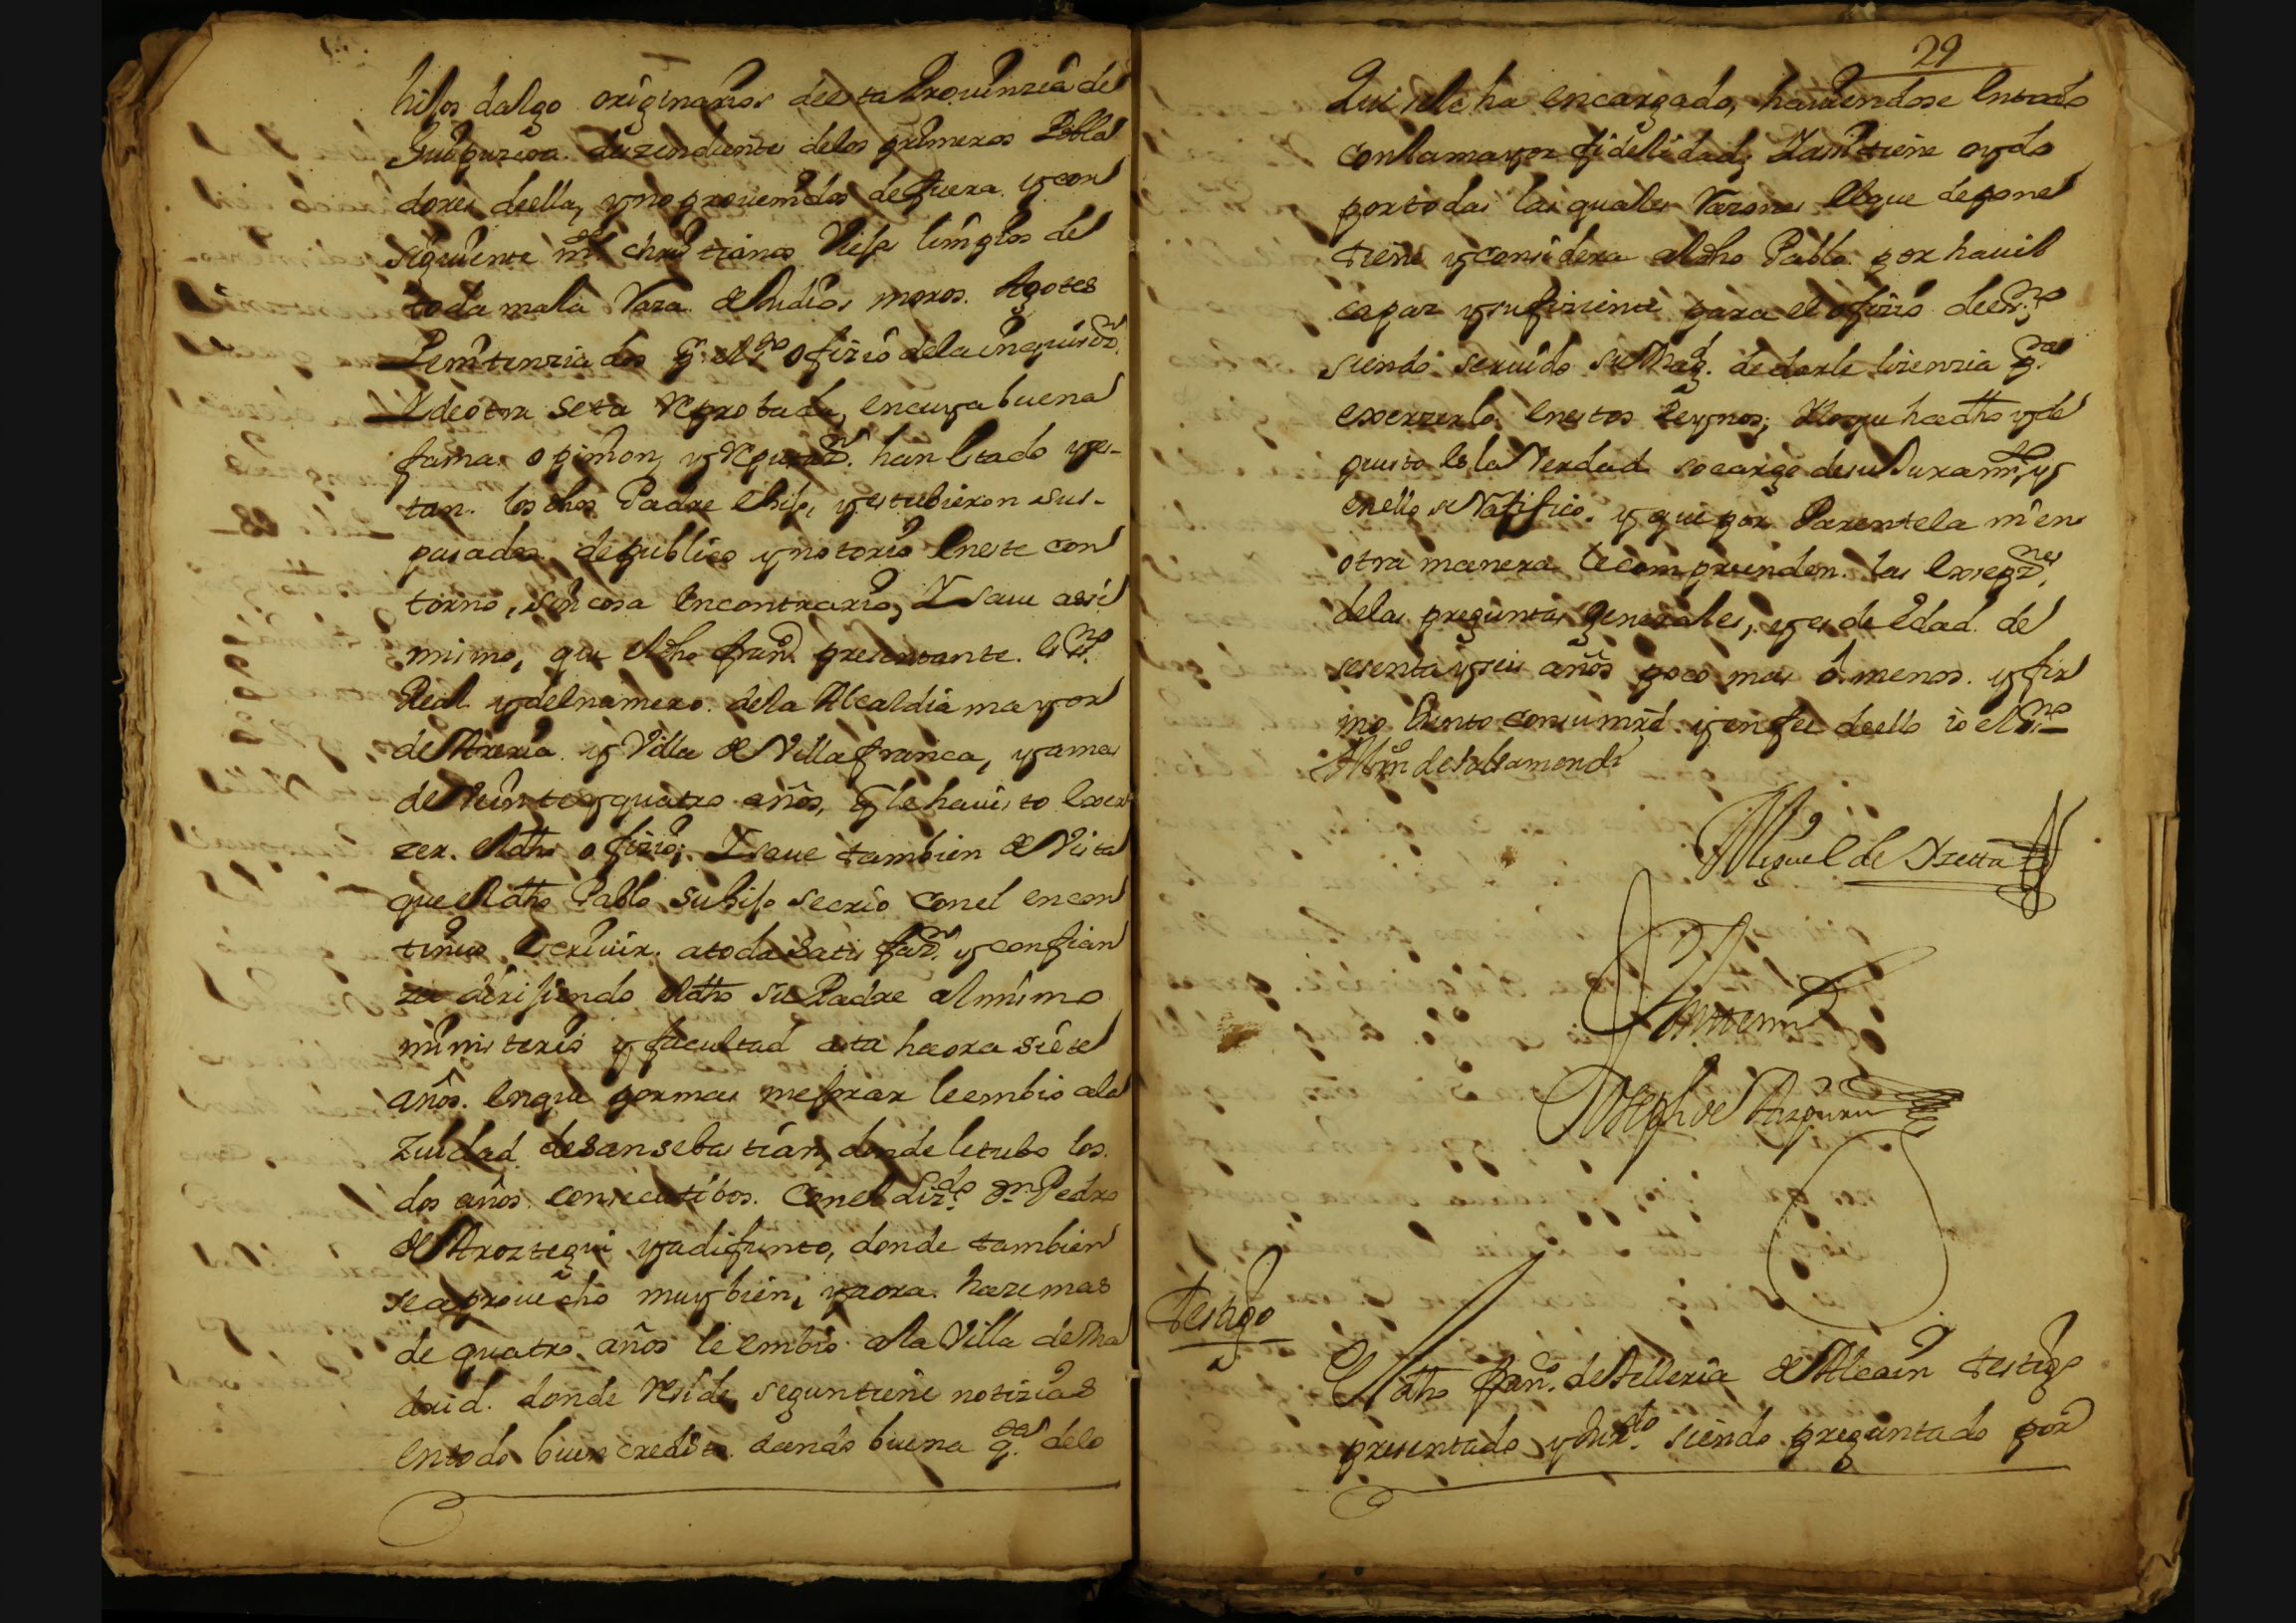 hijos dalgo originarios de esta Prouinzia de
Guipuzcoa. deszendientes delos primeros Pobla
dores deella, y no prouenidos de fuera. y con
siguiente mte. christianos Viejos limpios de
toda mala Raza. de Judios, moros. Agotes
Penitenziados p. el sto. ofizio dela inquisizn.
Y de otra seta reprobada, en cuya buena
fama. opinion, y reputazn. han estado y es-
tan. los dhos Padre e hijo, y estubieron sus-
pasados, depublico y notorio en este con
torno, sin cosa encontrario, Y saue assi
mismo, que el dho frano. presentante. es no.
Real y delnumero. dela Alcaldia mayor
de Areria. y Villa de Villafranca, y a mas
de Veinte y quatro años, q le ha visto exer
zer. el dho ofizio; Y saue tambien de Vista
que el dho Pablo su hijo se crio con el encon
tinuo escriuir. atoda satisfazn. y confian
za dirijiendo el dho su Padre al mismo
ministerio y facultad asta haora siete
años. en que por mas mejorar le embio ala
Ziudad desansebastian, donde le tubo los.
dos años. consecutibos. con el Lizdo. Dn. Pedro
de Aroztegui ya difunto, donde tambien
se aprouecho muy bien, y aora. haze mas
de quatro. años le embio. ala Villa de Ma
drid. donde reside, segun tiene notizias
en todo buen credito. dando buena qta. delo
29
Que se le ha encargado, hauiendose entrado
con la mayor fidelidad; Y assi tiene oydo
por todas las quales Razones el que depone
tiene y considera al dho Pablo. por hauil
capaz y sufiziente para el ofizio de esno.
siendo seruido su Mag. de darle lizenzia pa.
exerzerlo. en estos Reynos; Y lo que ha dho y de
puesto es la Verdad so cargo desu Juramto, y
en ello se Ratifico. y que por Parentela ni en
otra manera le comprenden. las exsepznes.
delas preguntas generales, y es de edad. de
sesenta y seis años poco mas ô menos. y fir
mo Junto con su mrd. y en fee de ello io el sno.
Miguel de Yzetta
Ante mi
Joseph de
Testigo
El dho frano. de Telleria de Alcain testigo
presentado y Jurdo. siendo preguntado por